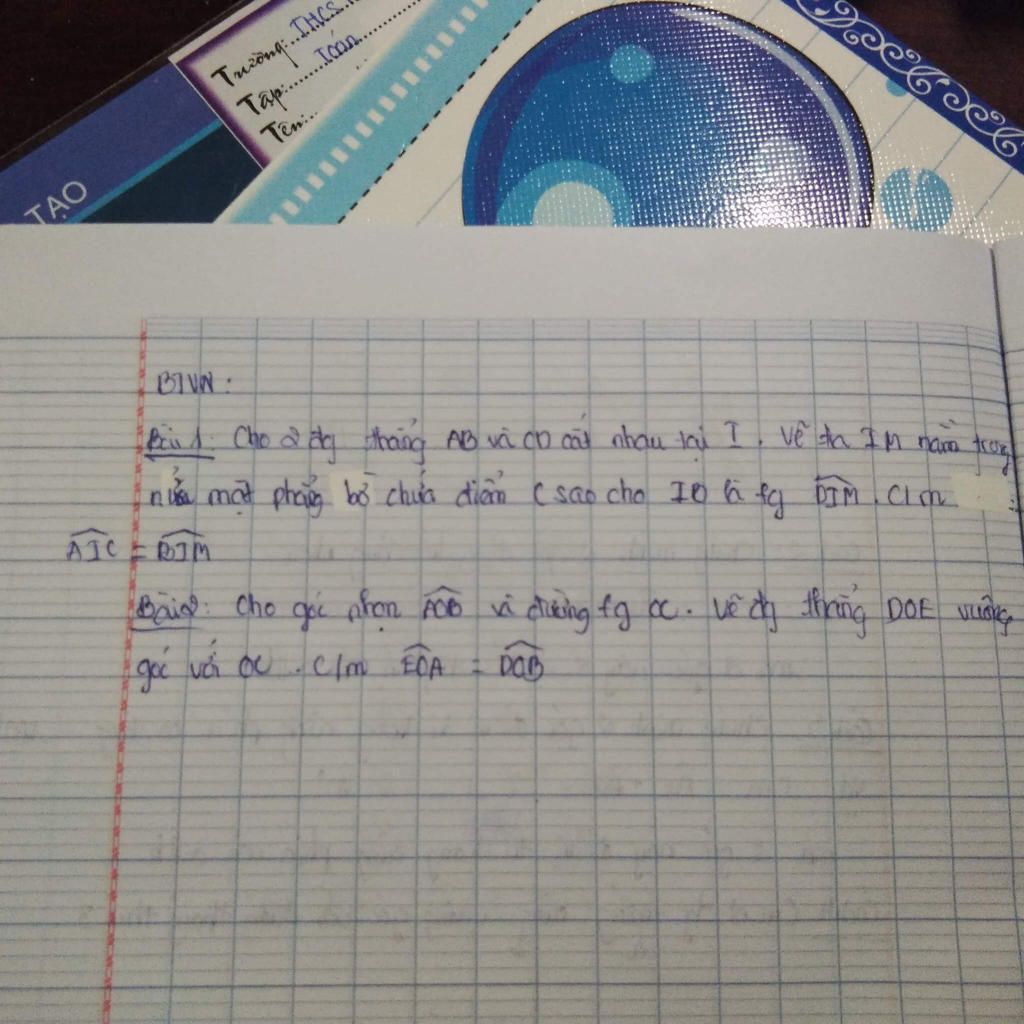 Trường: THCS
Tập: Toán
Tên:
TẠO
BTVN:
Bài 1: Cho 2 đg thẳng AB và CD cắt nhau tại I. Vẽ tia IM nằm trong
nửa mặt phẳng bờ chứa điểm C sao cho ID là fg DIM. C/m :
AIC = BIM
Bài 2: Cho góc nhọn AOB và đường fg OC. Vẽ đg thẳng DOE vuông
góc với OC. C/m EOA = DOB